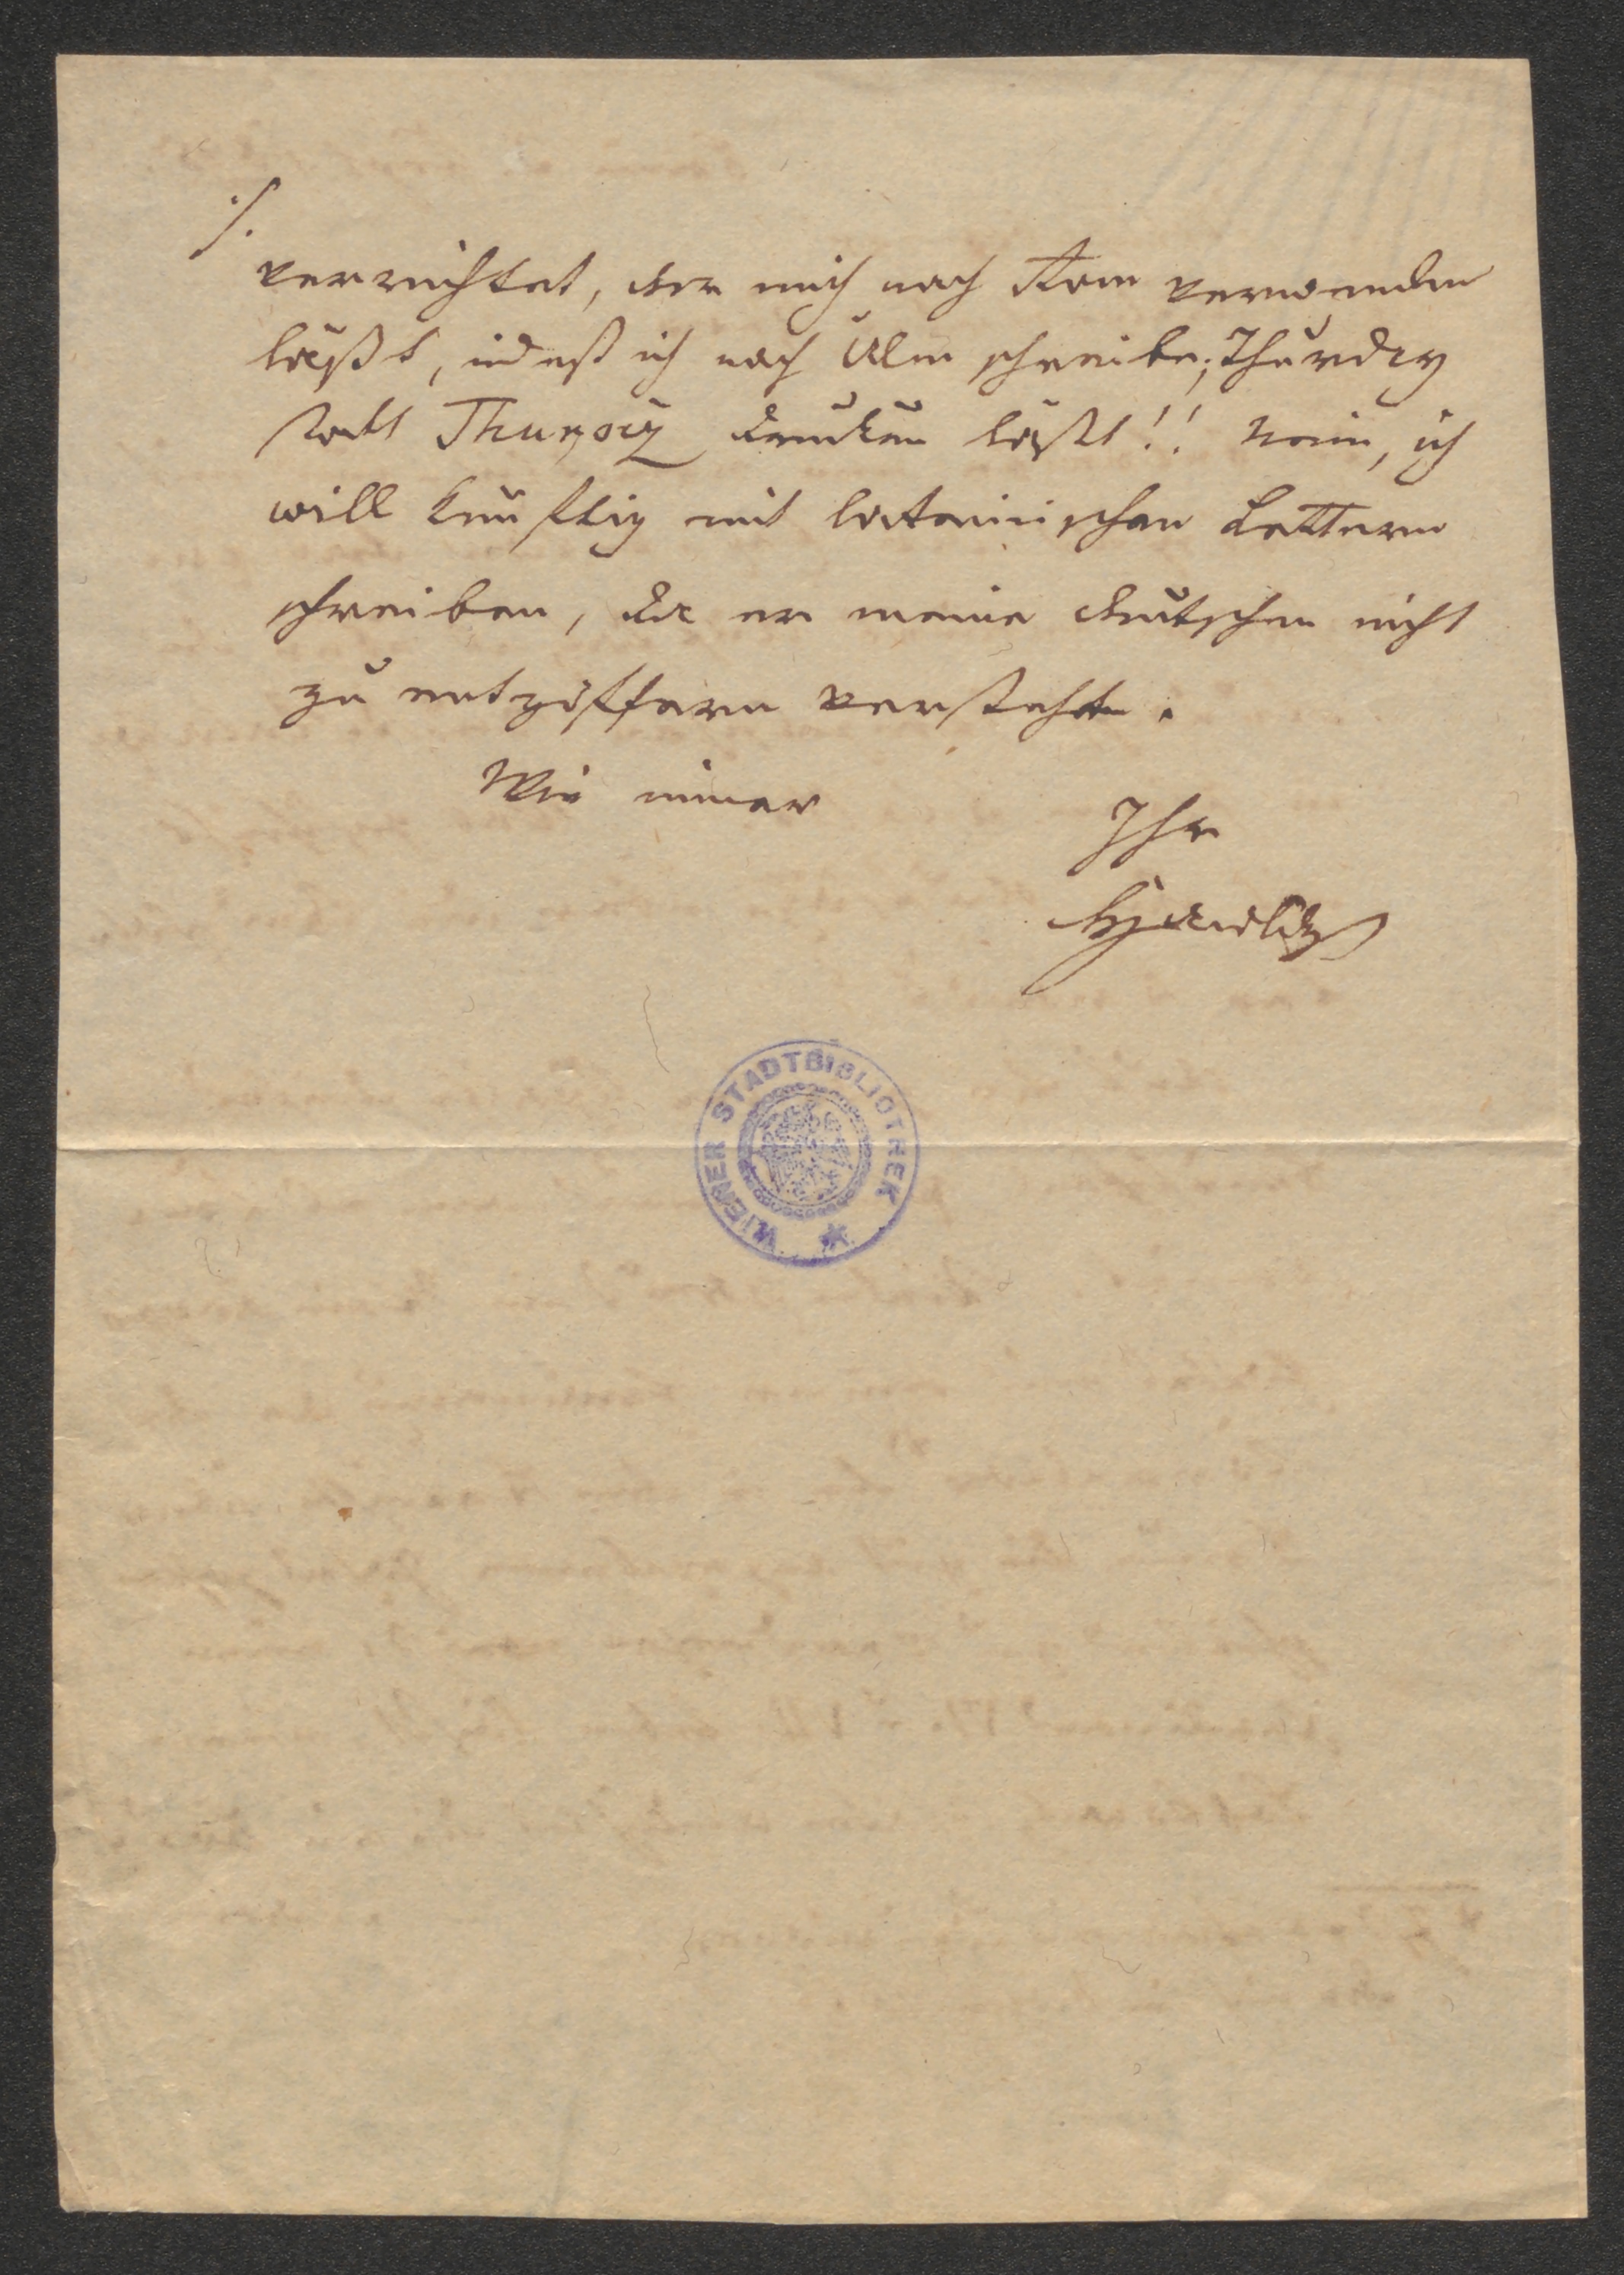 ./.
verrichtet, der mich nach Rom verwenden
läßt, indeß ich nach Ulm schreibe; Thurdzy
statt Thuroczÿ drucken läßt!! Nein, ich
will künftig mit lateinischen Lettern
schreiben, da er meine deutschen nicht
zu entziffern versteht.
Wie immer
Ihr
WIENER STADTBIBLIOTHEK